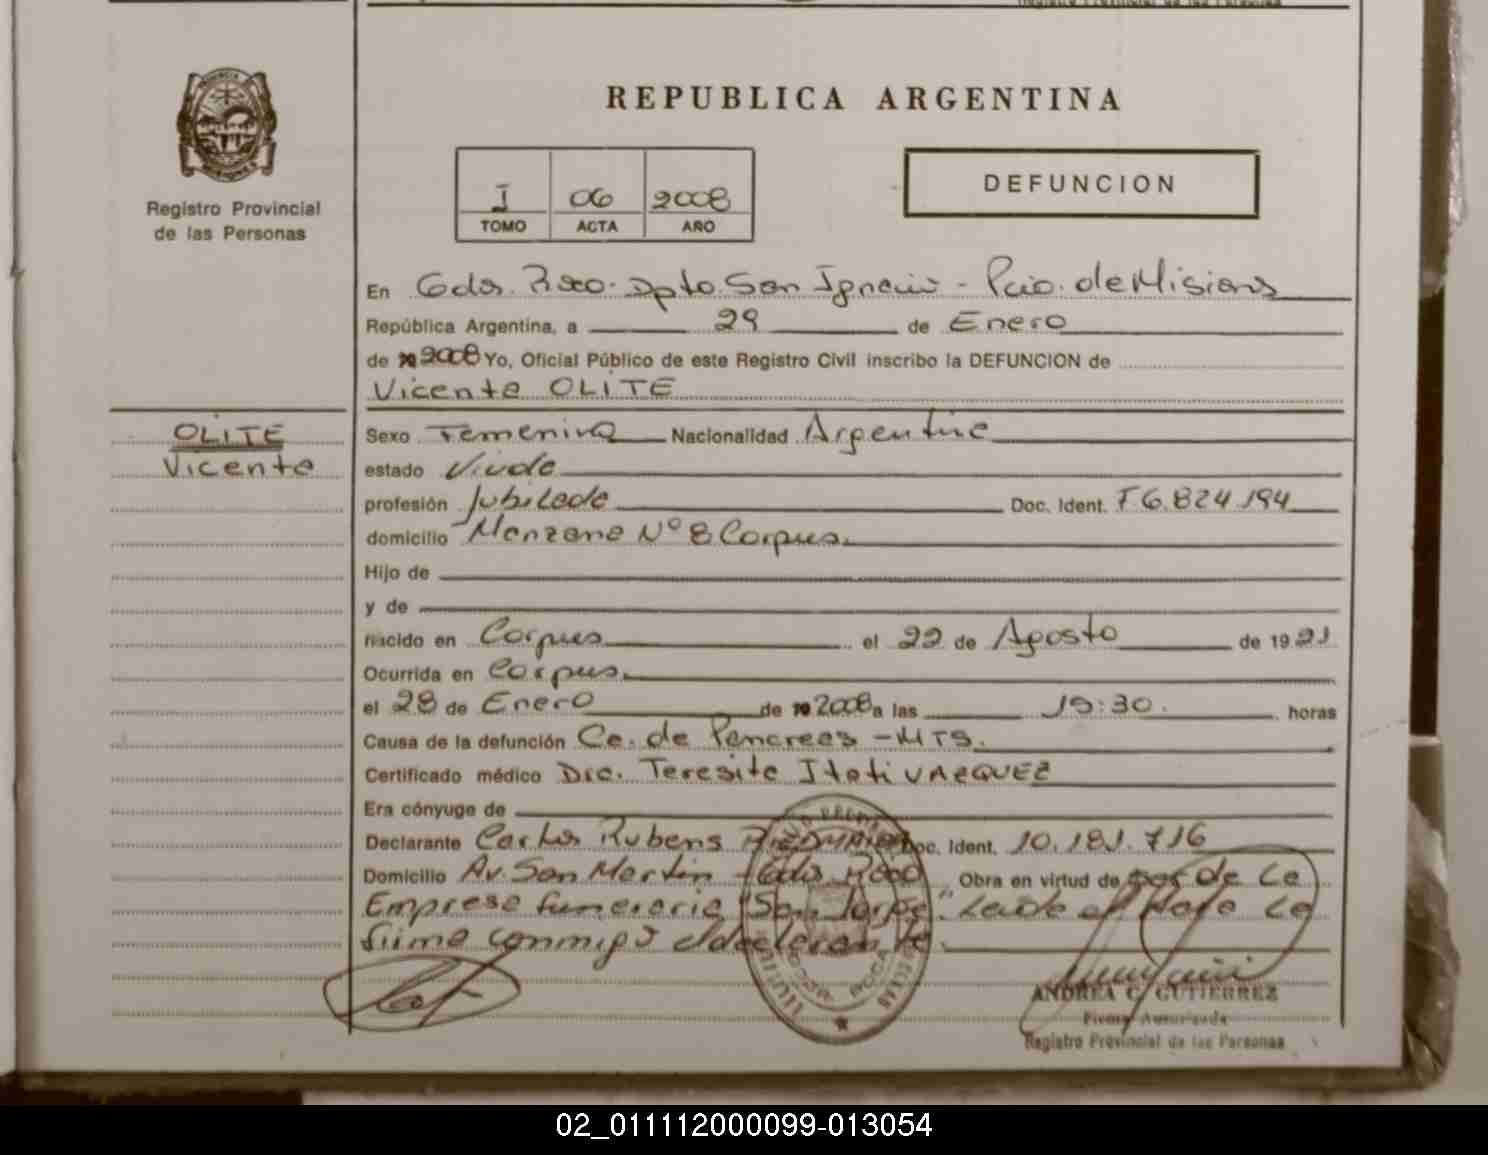 Registro Provincial de las Personas
REPUBLICA ARGENTINA
Registro Provincial
de las Personas
I 06 2008
TOMO ACTA AÑO
DEFUNCION
En Gdor. Roca. Dpto San Ignacio - Pcia. de Misiones
República Argentina, a 29 de Enero
de 2008 Yo, Oficial Público de este Registro Civil inscribo la DEFUNCION de
Vicenta OLITE
OLITE
Vicenta
Sexo Femenina Nacionalidad Argentina
estado Viuda
profesión Jubilada Doc. Ident. F 6.824.194
domicilio Manzana Nº 8 Corpus.
Hijo de
y de
nacido en Corpus el 22 de Agosto de 1921
Ocurrida en Corpus.
el 28 de Enero de 2008 a las 19:30. horas
Causa de la defunción Ca. de Pancreas - MTS.
Certificado médico Dra. Teresita Itati VAZQUEZ
Era cónyuge de
Declarante Carlos Rubens Doc. Ident. 10.181.716
Domicilio Av. San Martin - Gdor Roca Obra en virtud de ser de La
Empresa funeraria "San Jorge". Leida el Acta La
firma conmigo el declarante.
ANDREA C. GUTIERREZ
Firma Autorizada
Registro Provincial de las Personas
02_011112000099-013054